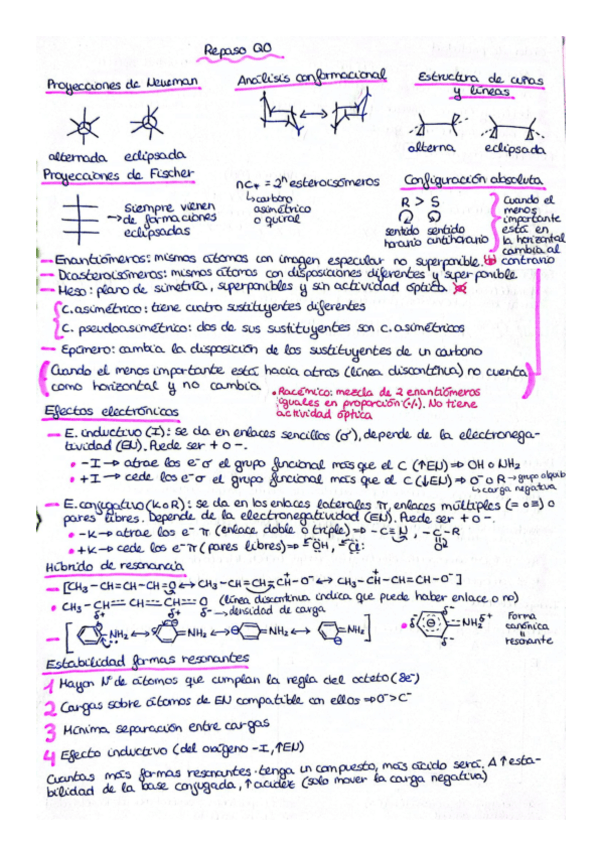 Repaso QO
Proyecciones de Newman
Análisis conformacional
Estructura de cuñas
y líneas
alternada eclipsada
alterna eclipsada
Proyecciones de Fischer
Siempre vienen
→ de formaciones
eclipsadas
nc* = 2ⁿ estereoisómeros
↳ carbono
asimétrico
o quiral
Configuración absoluta
R > S
sentido sentido
horario antihorario
Cuando el
menos
importante
está en
la horizontal
cambia al
contrario
— Enantiómeros: mismos átomos con imagen especular no superponible.
— Diastereoisómeros: mismos átomos con disposiciones diferentes y superponible
— Meso: plano de simetría, superponibles y sin actividad óptica
C. asimétrico: tiene cuatro sustituyentes diferentes
C. pseudoasimétrico: dos de sus sustituyentes son c. asimétricos
— Epímero: cambia la disposición de los sustituyentes de un carbono
(Cuando el menos importante está hacia atrás (línea discontínua) no cuenta
como horizontal y no cambia
• Racémico: mezcla de 2 enantiómeros
iguales en proporción (·/.). No tiene
actividad óptica
Efectos electrónicos
— E. inductivo (I): se da en enlaces sencillos (σ), depende de la electronega-
tividad (EN). Puede ser + o -.
• -I → atrae los e⁻ σ el grupo funcional más que el C (↑EN) ⇒ OH o NH₂
• +I → cede los e⁻ σ el grupo funcional más que el C (↓EN) ⇒ O⁻ o R → grupo alquilo
↳ carga negativa
— E. conjugativo (K o R): se da en los enlaces laterales π, enlaces múltiples (= o ≡) o
pares libres. Depende de la electronegatividad (EN). Puede ser + o -.
• -K → atrae los e⁻ π (enlace doble o triple) ⇒ -C≡N, -C-R
O
• +K → cede los e⁻ π (pares libres) ⇒ ÖH, Cl:
Híbrido de resonancia
— [CH₃-CH=CH-CH=O ↔ CH₃-CH=CH-CH-O⁻ ↔ CH₃-CH-CH=CH-O⁻]
• CH₃-CH=CH=CH=O (línea discontinua indica que puede haber enlace o no)
δ+ δ+ δ- → densidad de carga
— [ NH₂ ↔ NH₂ ↔ NH₂ ↔ NH₂ ]
• δ- δ- δ- NH₂ δ+
forma
canónica
=
resonante
Estabilidad formas resonantes
1 Mayor Nº de átomos que cumplan la regla del octeto (8e⁻)
2 Cargas sobre átomos de EN compatible con ellos ⇒ O⁻>C⁻
3 Mínima separación entre cargas
4 Efecto inductivo (del oxígeno -I, ↑EN)
Cuantas más formas resonantes tenga un compuesto, más ácido será. A ↑ esta-
bilidad de la base conjugada, ↑ acidez (solo mover la carga negativa)